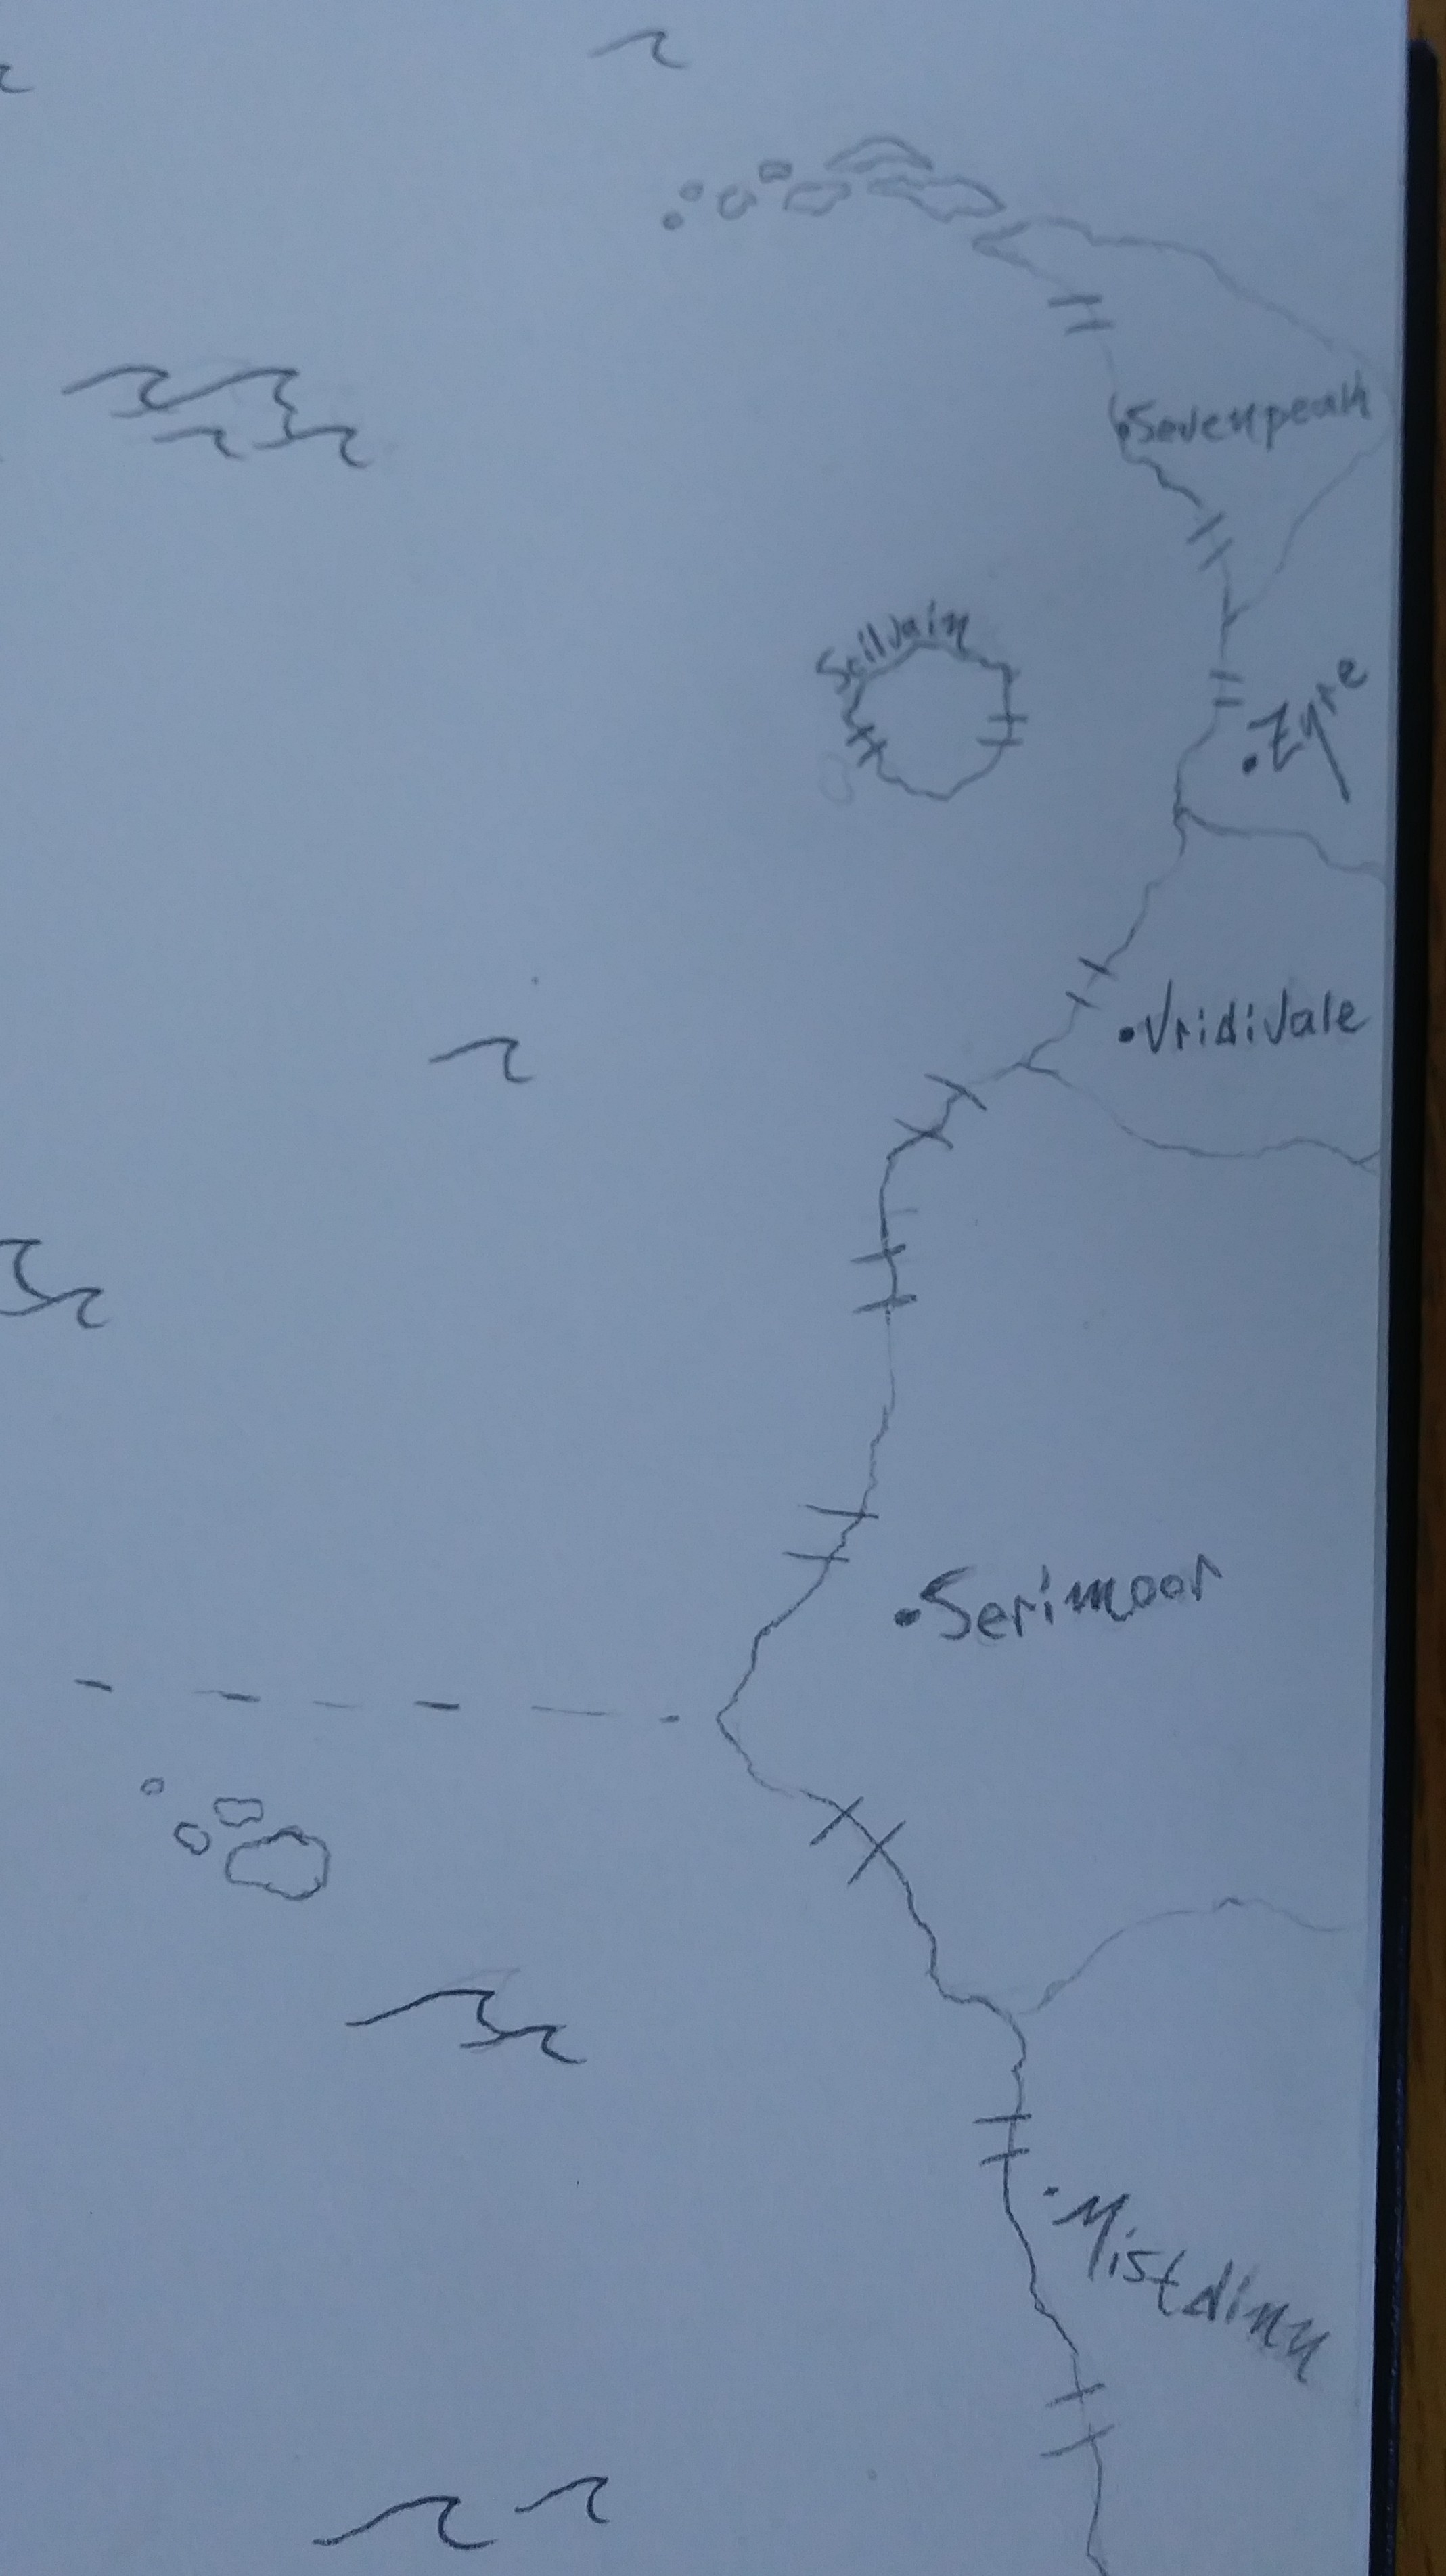 Sevenpeak
Scilvain
Zyre
Vridivale
Serimoor
Mistdinn